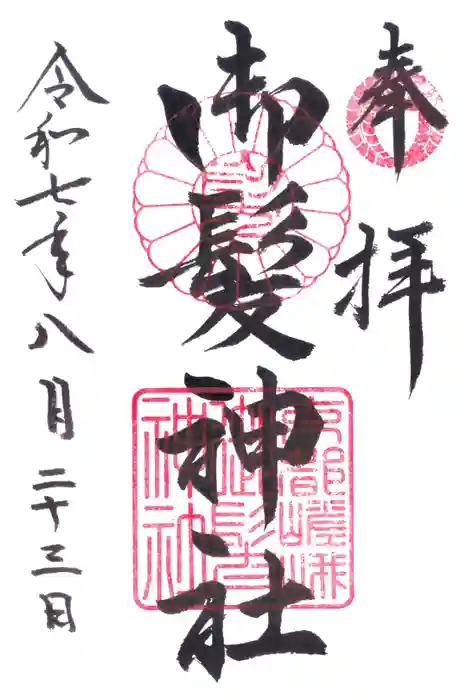 奉拝
御髪神社
京都嵯峨
御髪
神社
令和七年八月二十三日